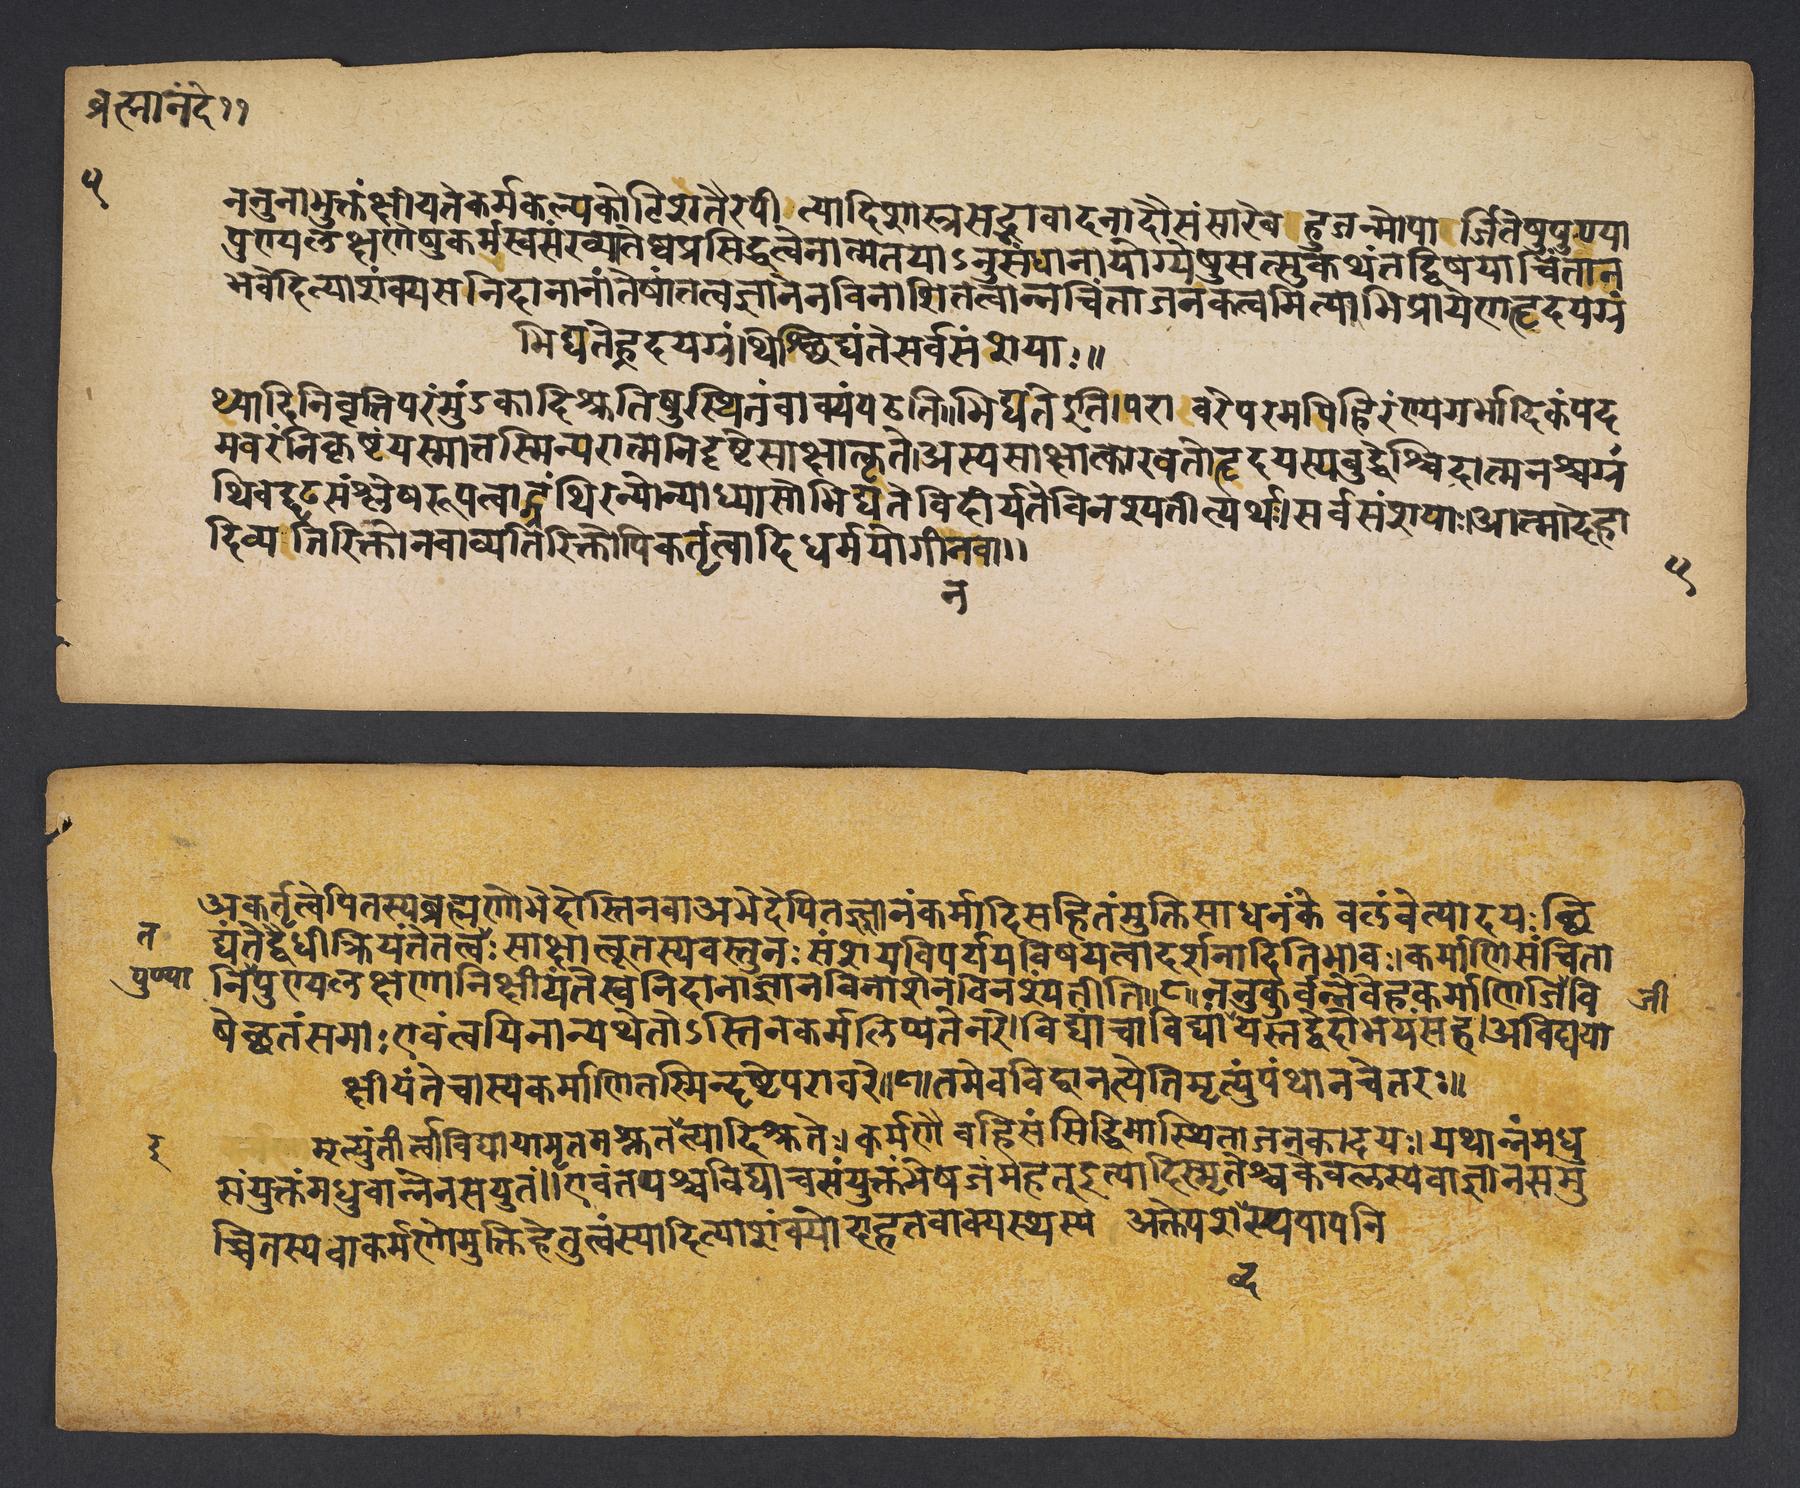 ब्रह्मानंदे११
५
ननुनाभुक्तंक्षीयतेकर्मकल्पकोटिशतैरपी त्यादिशास्त्रसद्भावादनादौसंसारेब हुजन्मोपा र्जितेषुपुण्या
पुण्यलक्षणेषुकर्मस्वसंख्यातेष्वप्रसिद्धत्वेनात्मतयाऽनुसंधानायोग्येषुसत्सुकथंतद्विषयाचिंतान
भवेदित्याशंक्यसनिदानानांतेषांतत्वज्ञानेनविनाशितत्वान्नचिंताजनकत्वमित्याभिप्रायेणहृदयग्रं
भिद्यतेहृदयग्रंथिश्छिद्यंतेसर्वसंशयाः॥
थ्यादिनिवृत्तिपरंमुंडकादिश्रुतिषुस्थितंवाक्यंपठति॥भिद्यतेइति।परा वरेपरमपिहिरंण्यगर्भादिकंपद
मवरंनिकृष्टंयस्मात्तस्मिन्परात्मनिदृष्टेसाक्षात्कृते।अस्यसाक्षात्कारवतोहृदयस्यबुद्धेश्चिदात्मनश्चग्रं
थिवद्दृढसंश्लेषरूपत्वाद्ग्रंथिरन्योन्याध्यासोभिद्यतेविदीर्यतेविनश्यतीत्यर्थः।सर्वसंशयाः।आत्मादेहा
दिव्य तिरिक्तोनवाव्यतिरिक्तोपिकर्तृत्वादिधर्मयोगीनवा।।
न
५
अकर्तृत्वेपितस्यब्रह्मणोभेदोस्तिनवाअभेदेपितज्ज्ञानंकर्मादिसहितंमुक्तिसाधनंके वलंवेत्यादयः छि
त
द्यंतेद्वैधीक्रियंतेतत्वः साक्षात्कृतस्यवस्तुनः संशयविपर्ययविषयत्वादर्शनादितिभावः।कर्माणिसंचिता
पुण्या
निपुण्यलक्षणानिक्षीयंतेस्वनिदानाज्ञानविनाशेनविनश्यंतीति॥८॥ननुकुर्वन्नेवेहकर्माणिजिवि
जी
षेच्छतंसमाः एवंत्वयिनान्यथेतोऽस्तिनकर्मलिप्यतेनरे।विद्यांचाविद्यांयस्तद्वेदोभयंसह।अविद्यया
क्षीयंतेचास्यकर्माणितस्मिन्दृष्टेपरावरे॥८॥तमेवविद्वानत्येतिमृत्युंपंथानचेतरः॥
इ
मृत्युंतीर्त्वाविद्यायामृतमश्नुतेत्यादिश्रुतेः। कर्मणै वहिसंसिद्धिमास्थिताजनकादयः। यथान्नंमधु
संयुक्तंमधुवान्नेनसंयुतं।।एवंतपश्चविद्याचसंयुक्तंभेषजंमहत्इत्यादिस्मृतेश्चकेवलस्यवाज्ञानसमु
च्चितस्यवाकर्मणोमुक्तिहेतुत्वंस्यादित्याशंक्योदाहृतवाक्यस्थस्य
ब्द